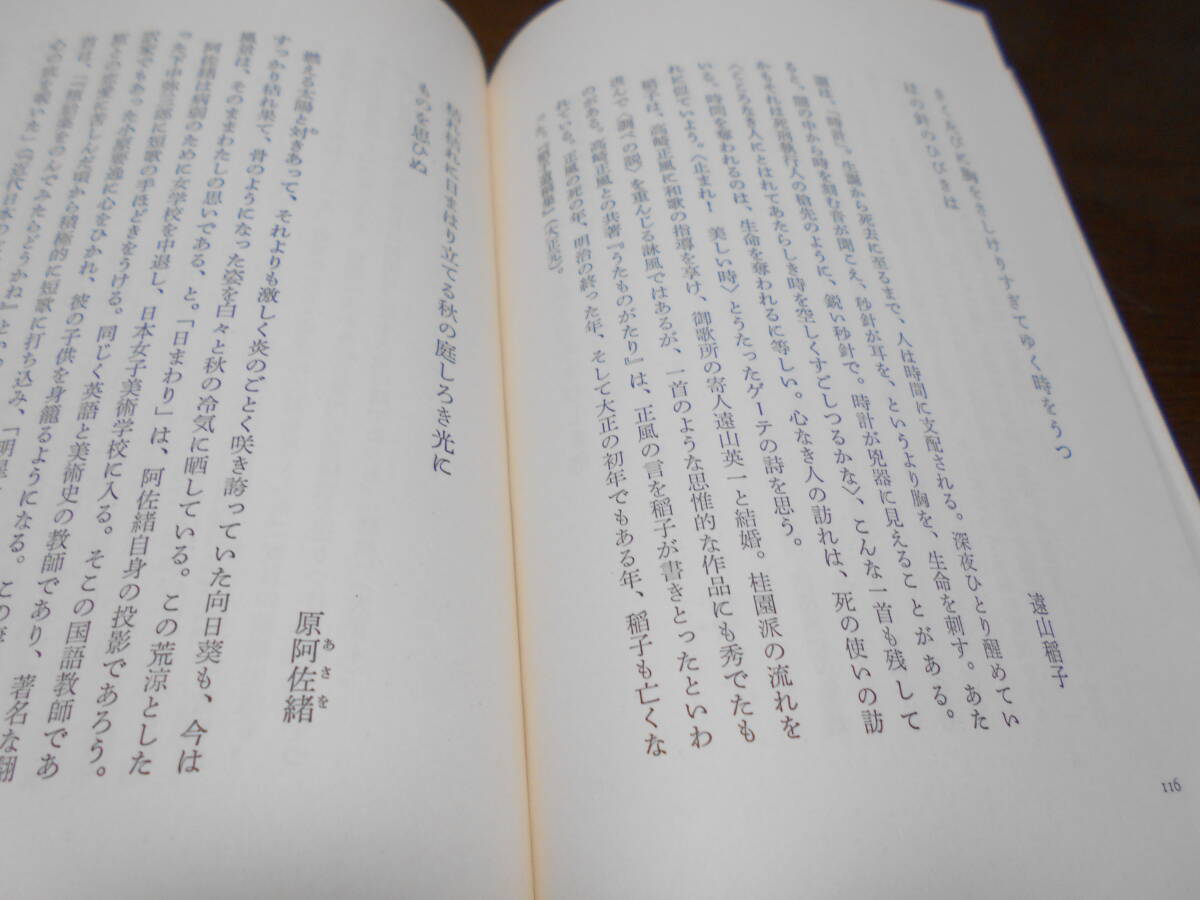 きくたびに胸をさしけりすぎてゆく時をうつ
はの針のひびきは
遠山稲子
題は、「時計」。生誕から死去に至るまで、人は時間に支配される。深夜ひとり醒めてい
ると、闇の中から時を刻む音が聞こえ、秒針が耳を、というより胸を、生命を刺す。あた
かもそれは死刑執行人の槍先のように、鋭い秒針で。時計が兇器に見えることがある。
〈こころなき人にとはれてあたらしき時を空しくすごしつるかな〉、こんな一首も残して
いる。時間を奪われるのは、生命を奪われるに等しい。心なき人の訪れは、死の使いの訪
れに似ていよう。〈止まれ! 美しい時〉とうたったゲーテの詩を思う。
稲子は、高崎正風に和歌の指導を享け、御歌所の寄人遠山英一と結婚。桂園派の流れを
汲んで〈調べの説〉を重んじる詠風ではあるが、一首のような思惟的な作品にも秀でたも
のがある。高崎正風との共著『うたものがたり』は、正風の言を稲子が書きとったといわ
れている。正風の死の年、明治の終った年、そして大正の初年でもある年、稲子も亡くな
った。『稲子遺稿集』(大正元)。
116
枯れ枯れに日まはり立てる秋の庭しろき光に
ものを思ひぬ
原阿佐緒
あさを
燃える太陽と対きあって、それよりも激しく炎のごとく咲き誇っていた向日葵も、今は
すっかり枯れ果て、骨のようになった姿を白々と秋の冷気に晒している。この荒涼とした
風景は、そのままわたしの思いである、と。「日まわり」は、阿佐緒自身の投影であろう。
阿佐緒は病弱のために女学校を中退し、日本女子美術学校に入る。そこの国語教師であ
った下中弥三郎に短歌の手ほどきをうける。同じく英語と美術史の教師であり、著名な翻
訳家でもあった小原要逸に心をひかれ、彼の子供を身籠るようになる。この